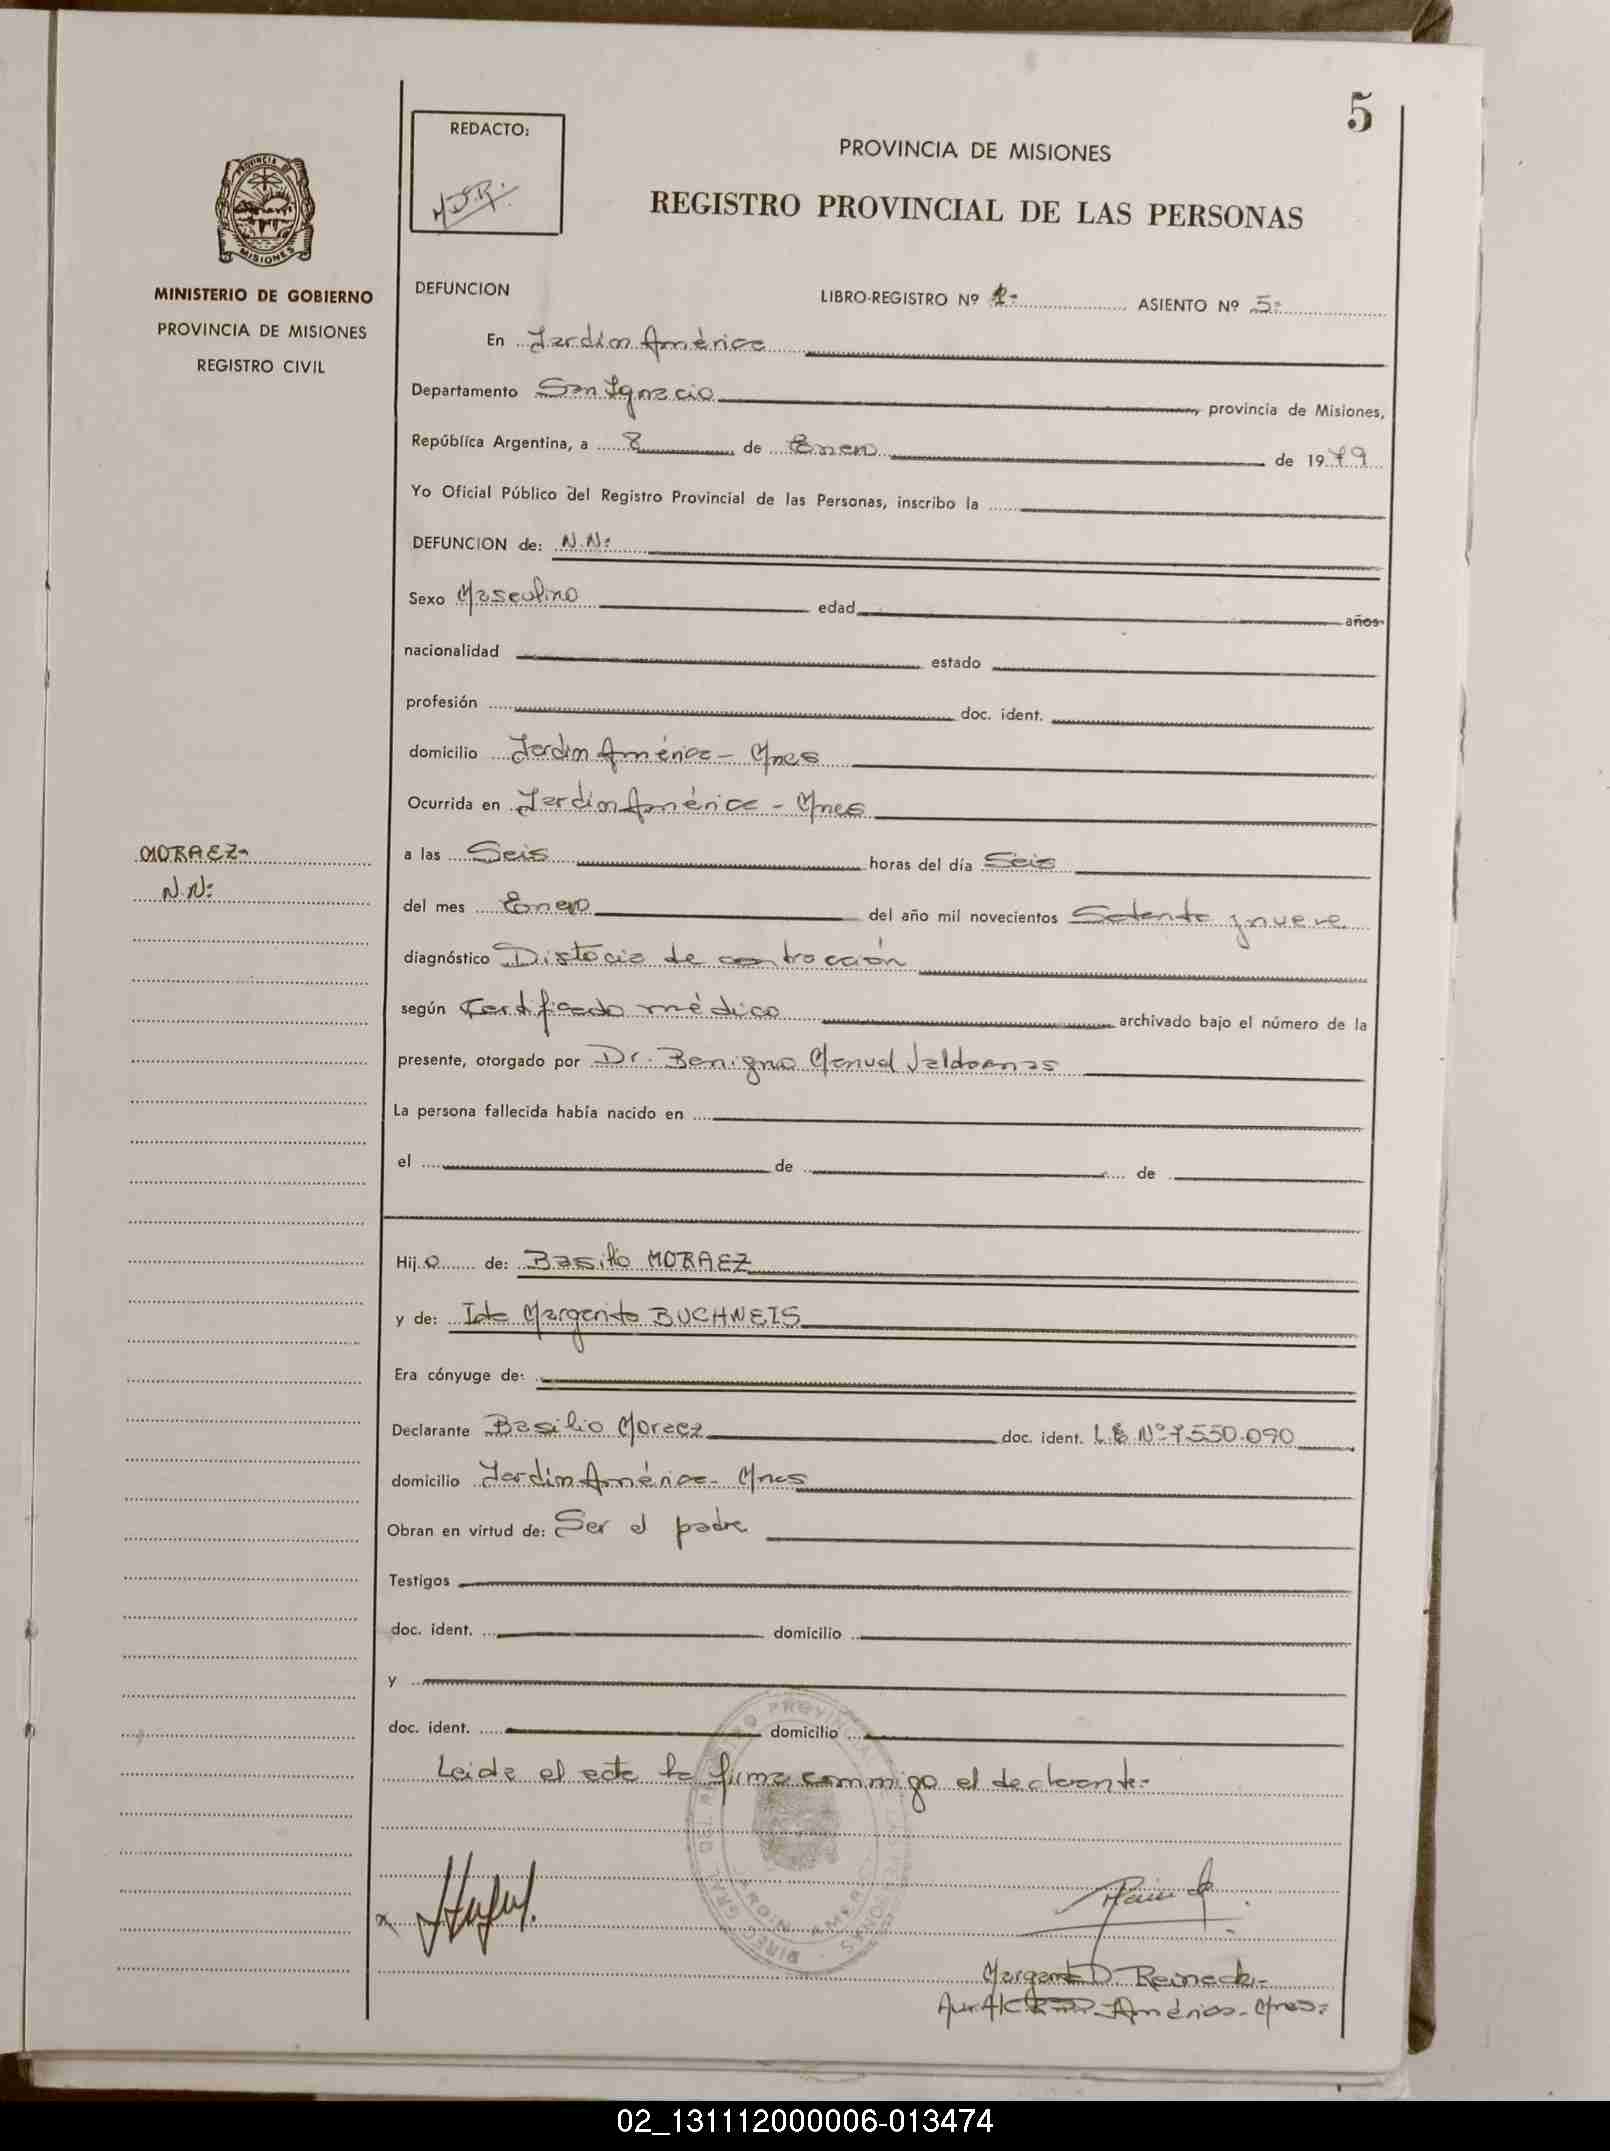 5
REDACTO:
M.D.R.
PROVINCIA DE MISIONES
REGISTRO PROVINCIAL DE LAS PERSONAS
PROVINCIA DE
MISIONES
MINISTERIO DE GOBIERNO
PROVINCIA DE MISIONES
REGISTRO CIVIL
DEFUNCION
LIBRO-REGISTRO Nº 1- ASIENTO Nº 5-
En Jardín América
Departamento San Ignacio, provincia de Misiones,
República Argentina, a 8 de Enero de 1979
Yo Oficial Público del Registro Provincial de las Personas, inscribo la
DEFUNCION de: N.N:
Sexo Masculino edad años
nacionalidad estado
profesión doc. ident.
domicilio Jardín América - Mnes
Ocurrida en Jardín América - Mnes
MORAEZ-
N.N:
a las Seis horas del día Seis
del mes Enero del año mil novecientos Setenta y nueve
diagnóstico Distocia de contracción
según Certificado médico archivado bajo el número de la
presente, otorgado por Dr. Benigno Manuel
La persona fallecida había nacido en
el de de
Hijo de: Basilio MORAEZ
y de: Ida Margarita BUCHNEIS
Era cónyuge de:
Declarante Basilio Moraez doc. ident. L.E Nº 7.550.090
domicilio Jardín América - Mnes
Obran en virtud de: Ser el padre
Testigos
doc. ident. domicilio
y
doc. ident. domicilio
Leida el acta la firma conmigo el declarante-
Margarita D. Reineck-
América - Mnes:
02_131112000006-013474